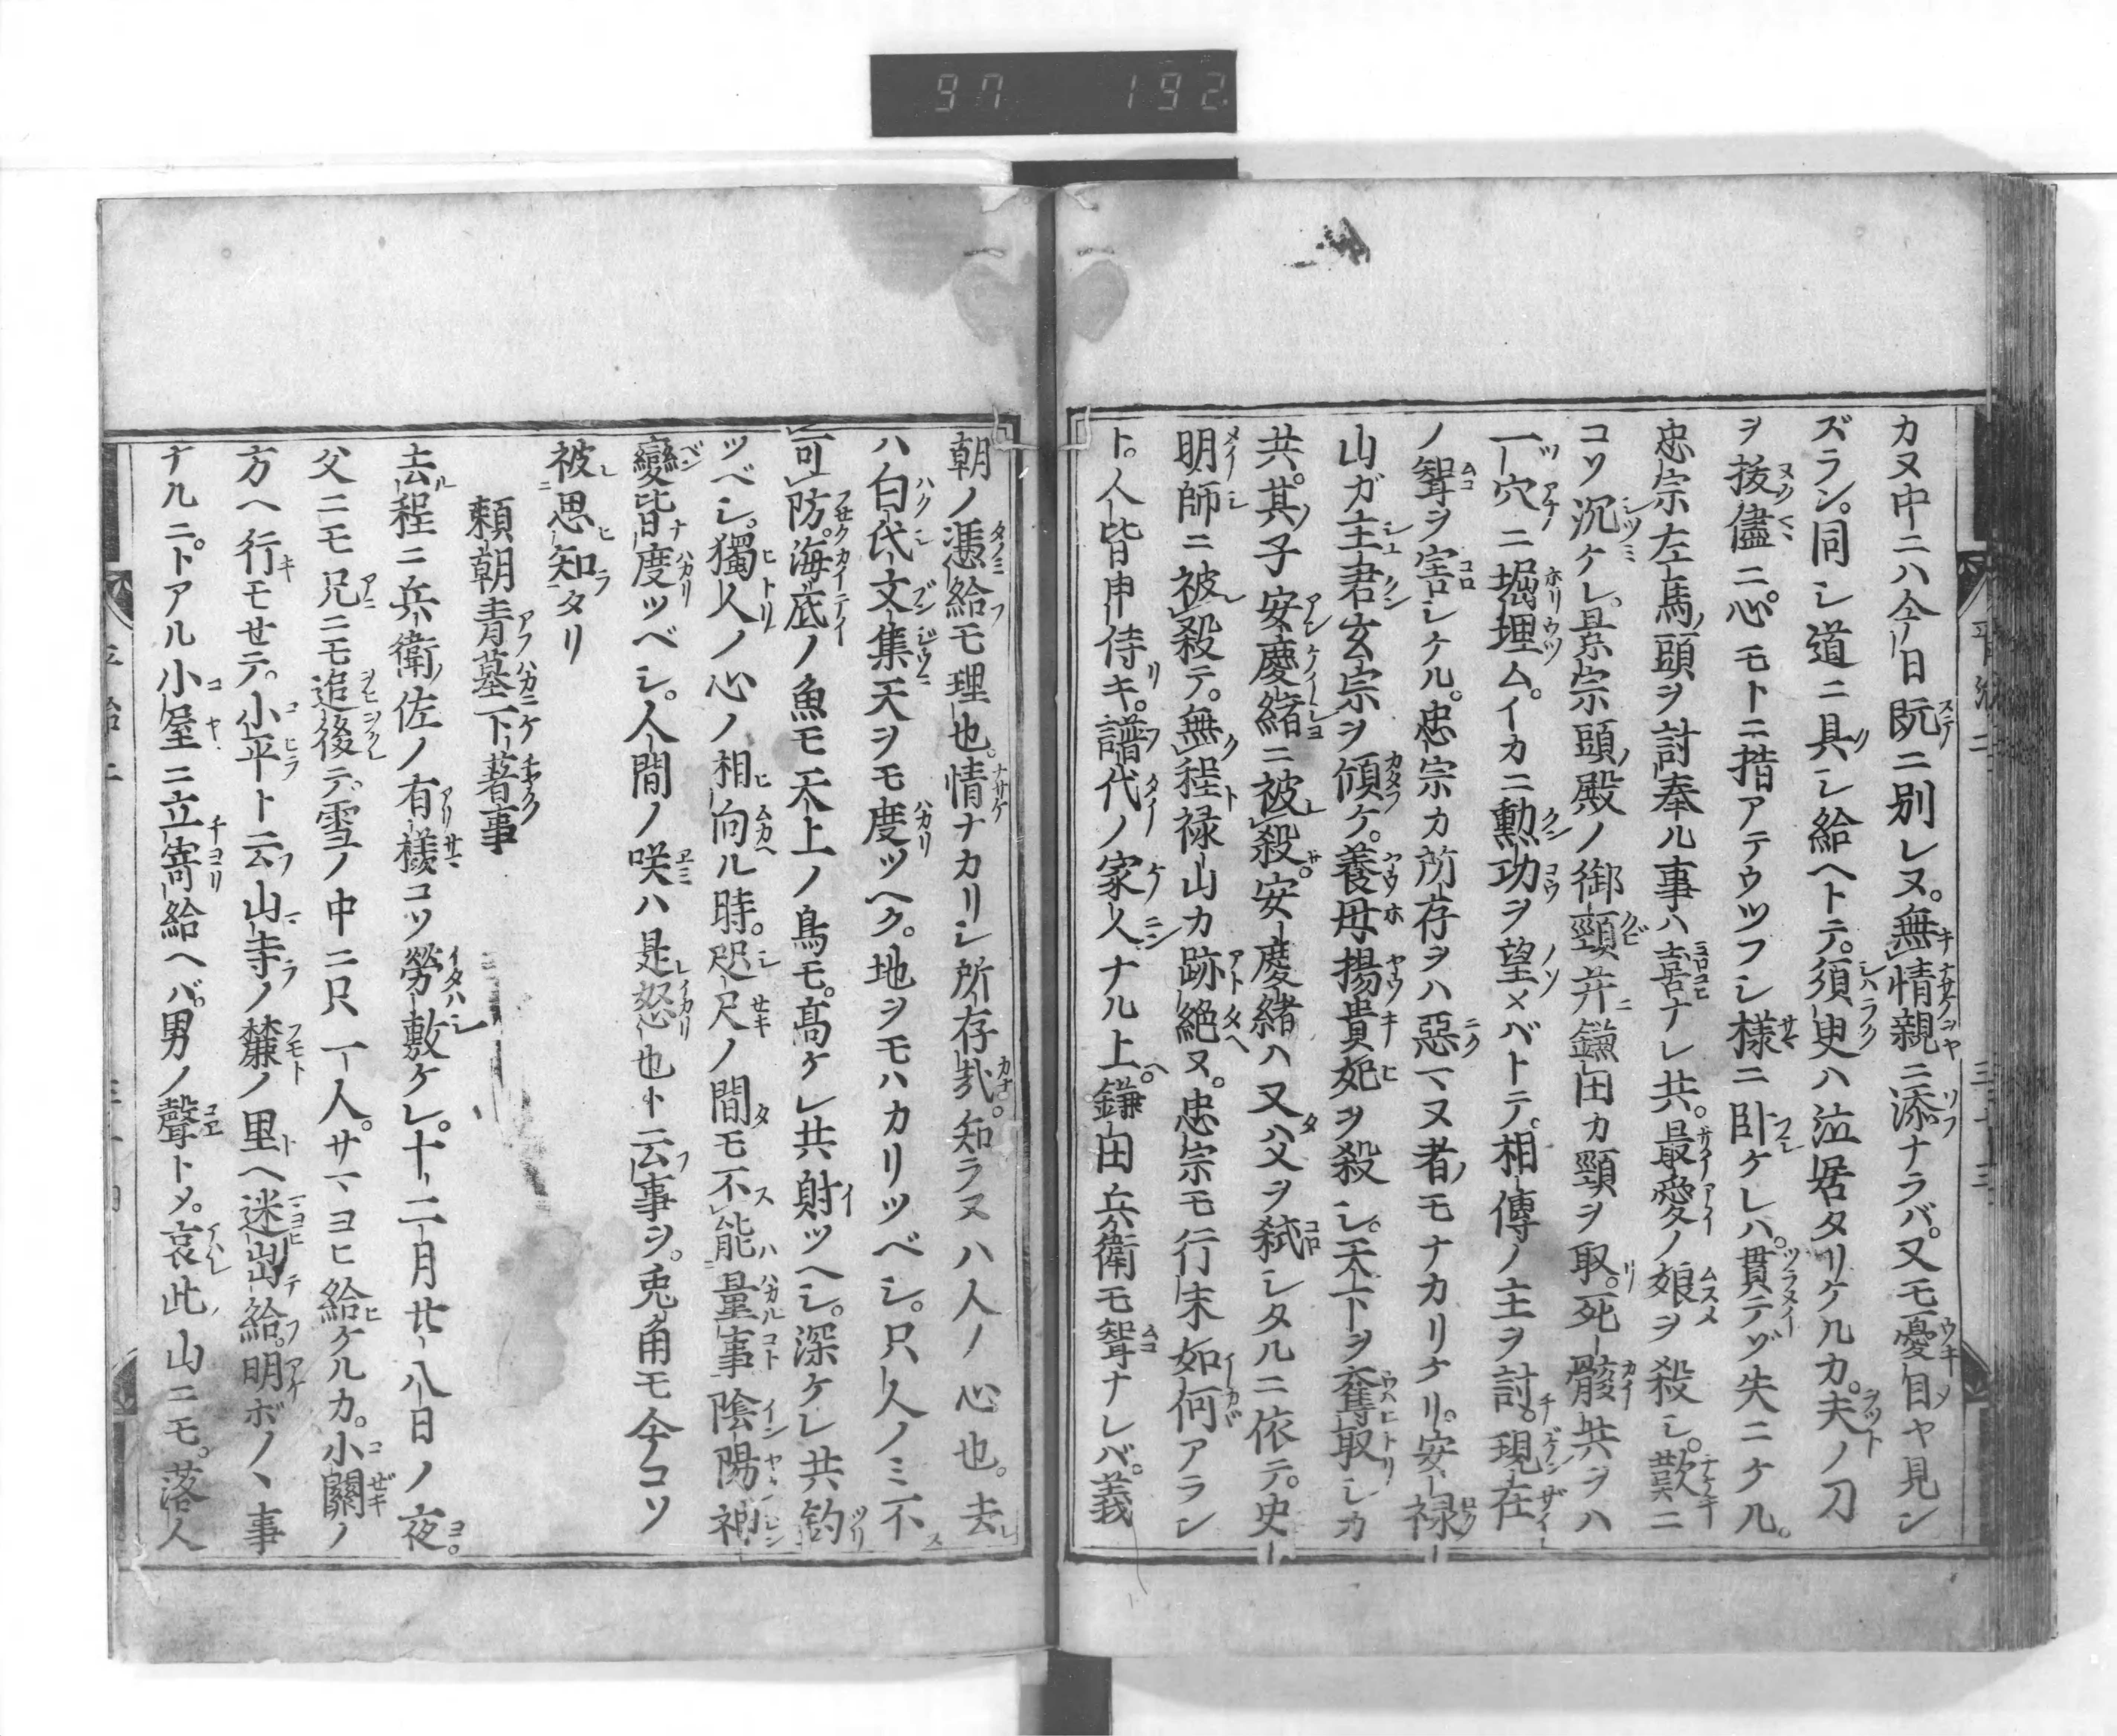 97 192
カヌ中ニハ今日既ニ別レヌ。無情親ニ添ナラバ。又モ憂目ヤ見ン
ズラン。同シ道ニ具シ給ヘトテ。須臾ハ泣居タリケルカ。夫ノ刀
ヲ抜儘ニ心モトニ措アテウツフシ様ニ臥ケレハ。貫テヅ失ニケル。
忠宗左馬頭ヲ討奉ル事ハ喜ナレ共。最愛ノ娘ヲ殺シ。歎ニ
コソ沉ケレ。景宗頭殿ノ御頸并鎌田カ頸ヲ取。死骸共ヲハ
一穴ニ堀埋ム。イカニ勲功ヲ望メバトテ。相傳ノ主ヲ討。現在
ノ聟ヲ害シケル。忠宗カ所存ヲハ惡マヌ者モナカリケリ。安禄
山ガ主君玄宗ヲ傾ケ。養母楊貴妃ヲ殺シ。天下ヲ奪取シカ
共。其子安慶緒ニ被殺。安慶緒ハ又父ヲ弑シタルニ依テ。史
明師ニ被殺テ。無程禄山カ跡絶ヌ。忠宗モ行末如何アラン
ト。人皆申侍キ。譜代ノ家人ナル上。鎌田兵衛モ聟ナレバ。義
朝ノ憑給モ理也。情ナカリシ所存哉。知ラヌハ人ノ心也。去
ハ白氏文集天ヲモ度ツヘク。地ヲモハカリツベシ。只人ノミ不
可防。海底ノ魚モ天上ノ鳥モ。高ケレ共射ツヘシ。深ケレ共釣
ツベシ。獨人ノ心ノ相向ル時。咫尺ノ間モ不能量事陰陽神
變皆度ツベシ。人間ノ咲ハ是怒也ト云事ヲ。兎角モ今コソ
被思知タリ
頼朝青墓下著事
去程ニ兵衛佐ノ有様コソ勞敷ケレ。十二月廿八日ノ夜。
父ニモ兄ニモ追後テ。雪ノ中ニ只一人。サマヨヒ給ケルカ。小關ノ
方ヘ行モセテ。小平ト云山寺ノ麓ノ里ヘ迷出給。明ボノヽ事
ナルニ。トアル小屋ニ立寄給ヘバ。男ノ聲トメ。哀此山ニモ。落人